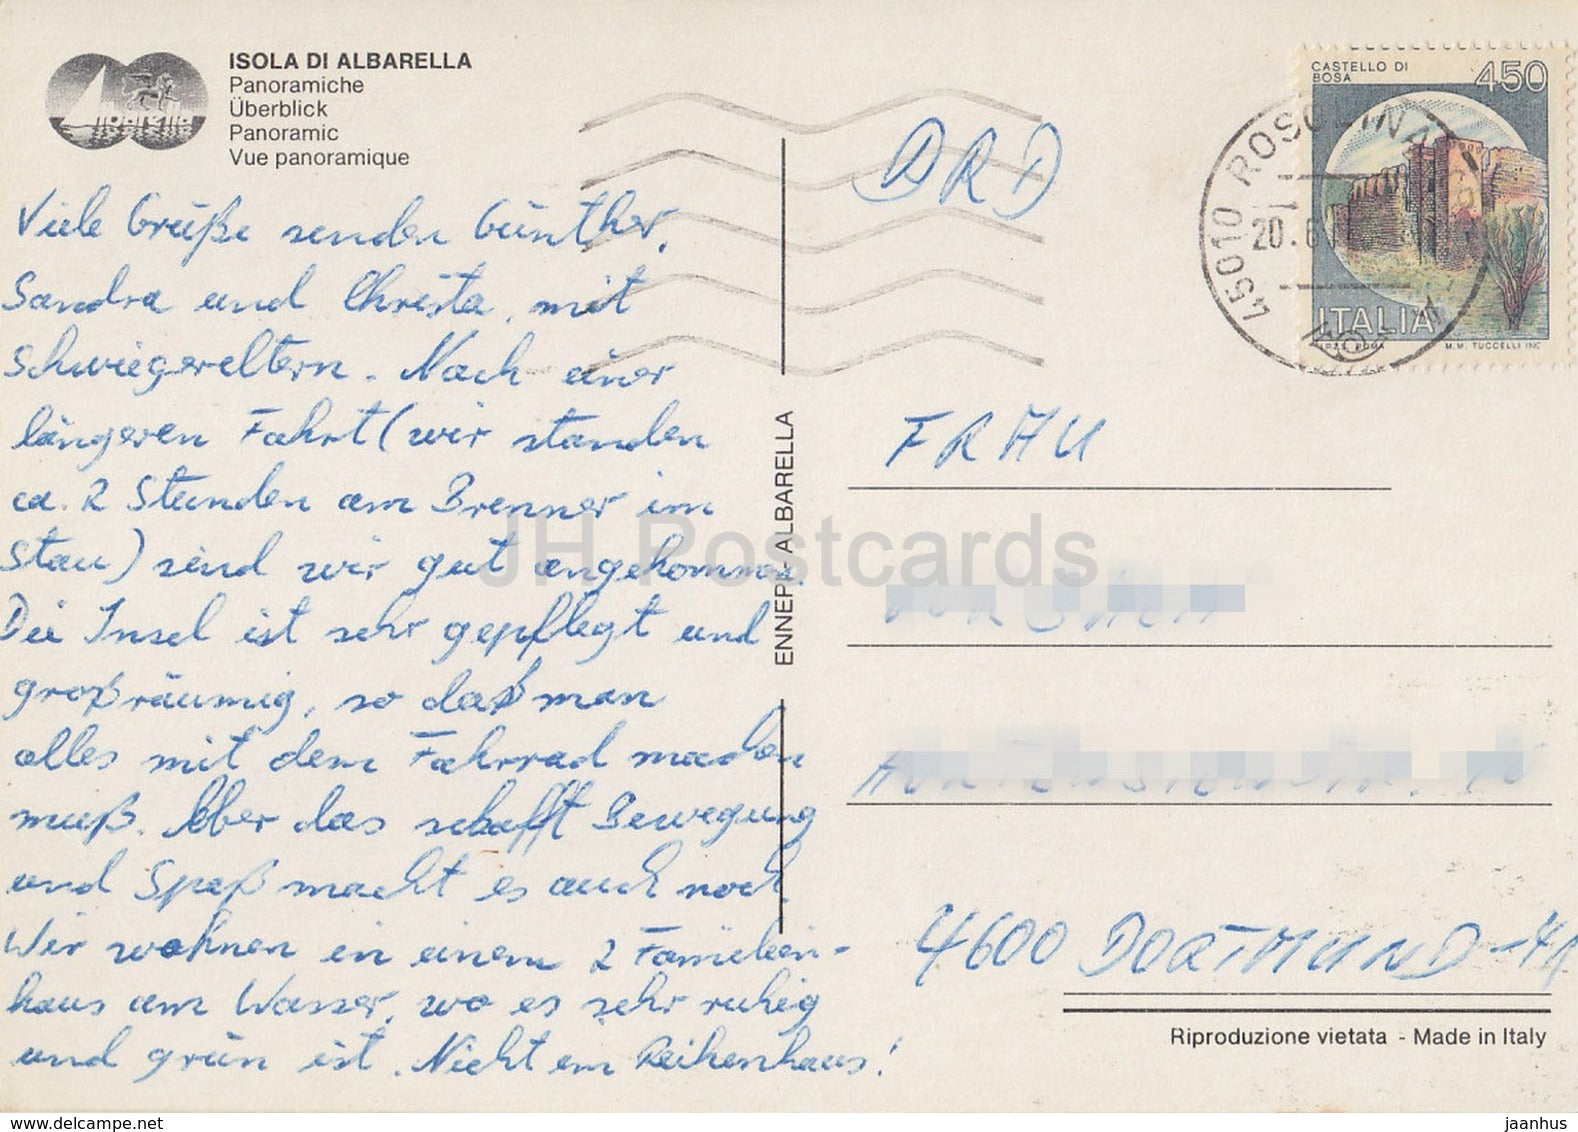 ISOLA DI ALBARELLA
Panoramiche
Überblick
Panoramic
Vue panoramique
Albarella
Viele Grüße senden Günther,
Sandra und Christa, mit
Schwiegereltern. Nach einer
längeren Fahrt (wir standen
ca. 2 Stunden am Brenner im
Stau) sind wir gut angekommen.
Die Insel ist sehr gepflegt und
großräumig, so daß man
alles mit dem Fahrrad machen
muß. Aber das schafft Bewegung
und Spaß macht es auch noch.
Wir wohnen in einem 2 Familien-
haus am Wasser, wo es sehr ruhig
und grün ist. Nicht im Reihenhaus!
ENNEPI - ALBARELLA
BRD
45010 ROSOLINA
20.
CASTELLO DI
BOSA
450
ITALIA
I.P.Z.S. ROMA
M.M. TUCCELLI INC.
FRAU
4600 DORTMUND-41
Riproduzione vietata - Made in Italy
JH Postcards
www.delcampe.net
jaanhus